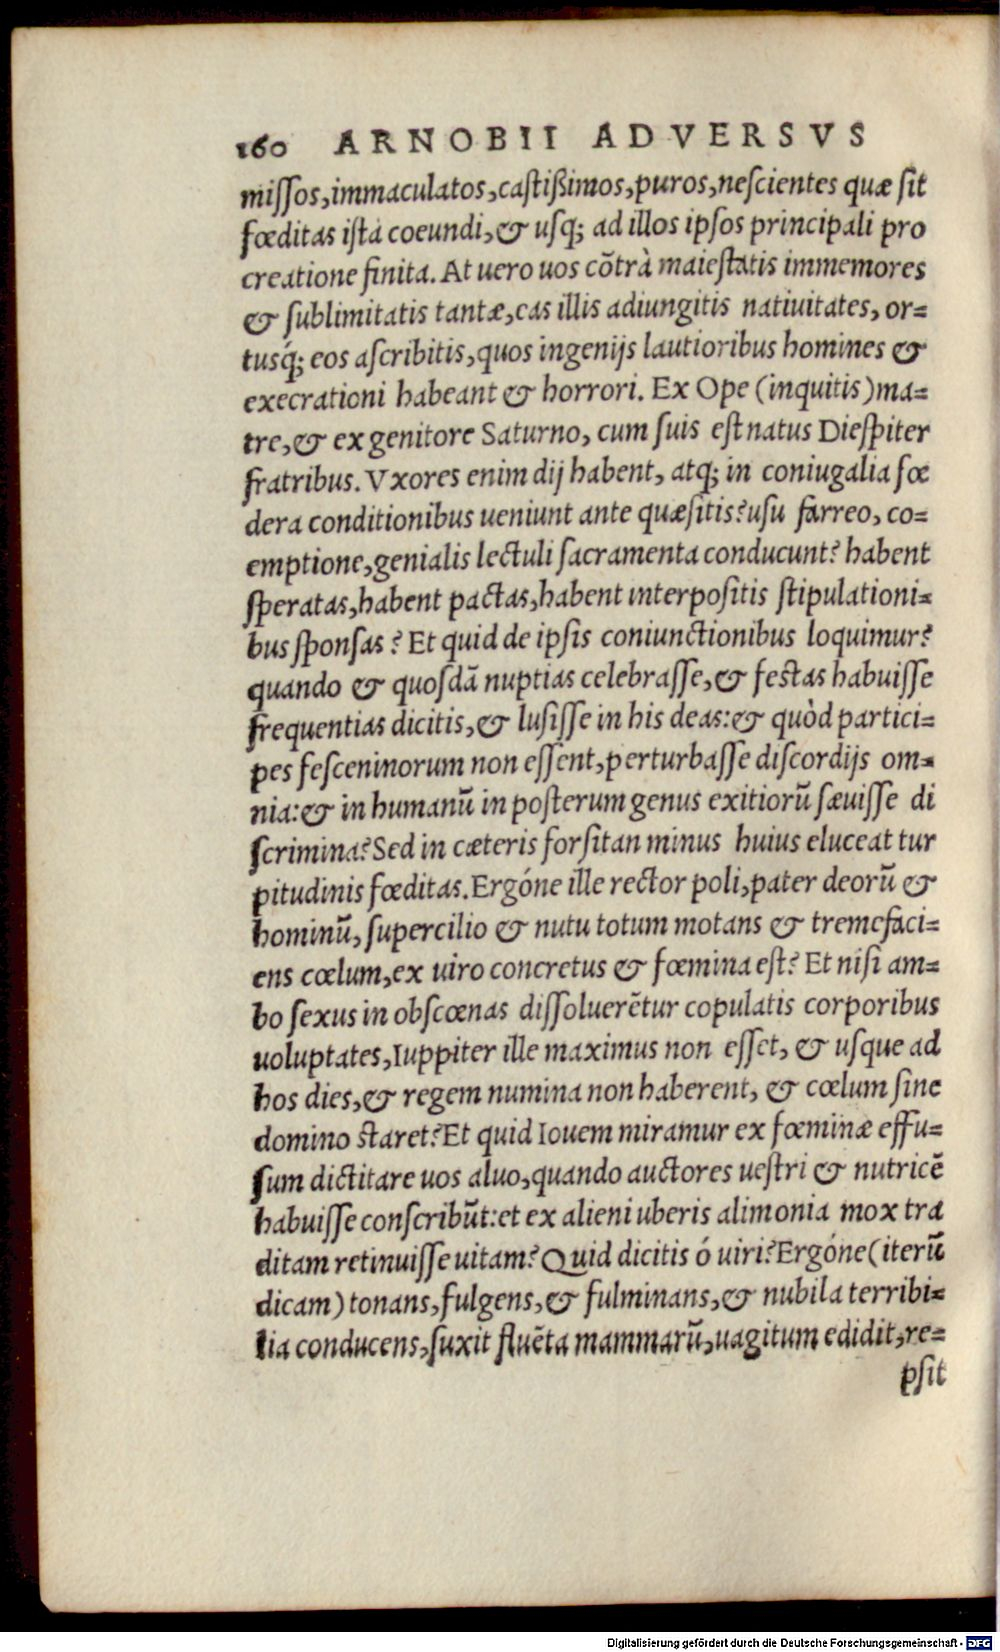 160 ARNOBII ADVERSVS
miſſos,immaculatos,caſtißimos,puros,neſcientes quæ ſit
fœditas iſta coeundi,& uſq; ad illos ipſos principali pro
creatione finita. At uero uos cõtrà maieſtatis immemores
& ſublimitatis tantæ,eas illis adiungitis natiuitates, or=
tusq́; eos aſcribitis,quos ingenijs lautioribus homines &
execrationi habeant & horrori. Ex Ope (inquitis)ma=
tre,& ex genitore Saturno, cum ſuis eſt natus Dieſpiter
fratribus. Vxores enim dij habent, atq; in coniugalia fœ
dera conditionibus ueniunt ante quæſitis?uſu farreo, co=
emptione,genialis lectuli ſacramenta conducunt? habent
ſperatas,habent pactas,habent interpoſitis ſtipulationi=
bus ſponſas ? Et quid de ipſis coniunctionibus loquimur?
quando & quoſdã nuptias celebraſſe,& feſtas habuiſſe
frequentias dicitis,& luſiſſe in his deas:& quòd partici=
pes feſceninorum non eſſent,perturbaſſe diſcordijs om=
nia:& in humanũ in poſterum genus exitiorũ ſæuiſſe di
ſcrimina?Sed in cæteris forſitan minus huius eluceat tur
pitudinis fœditas.Ergóne ille rector poli,pater deorũ &
hominũ, ſupercilio & nutu totum motans & tremefaci=
ens cœlum,ex uiro concretus & fœmina eſt? Et niſi am=
bo ſexus in obſcœnas diſſoluerẽtur copulatis corporibus
uoluptates,Iuppiter ille maximus non eſſet, & uſque ad
hos dies,& regem numina non haberent, & cœlum ſine
domino ſtaret?Et quid Iouem miramur ex fœminæ effu=
ſum dictitare uos aluo,quando auctores ueſtri & nutricẽ
habuiſſe conſcribũt:et ex alieni uberis alimonia mox tra
ditam retinuiſſe uitam? Quid dicitis ó uiri?Ergóne(iterũ
dicam) tonans,fulgens,& fulminans,& nubila terribi=
lia conducens,ſuxit fluẽta mammarũ,uagitum edidit,re=
pſit
Digitalisierung gefördert durch die Deutsche Forschungsgemeinschaft - DFG